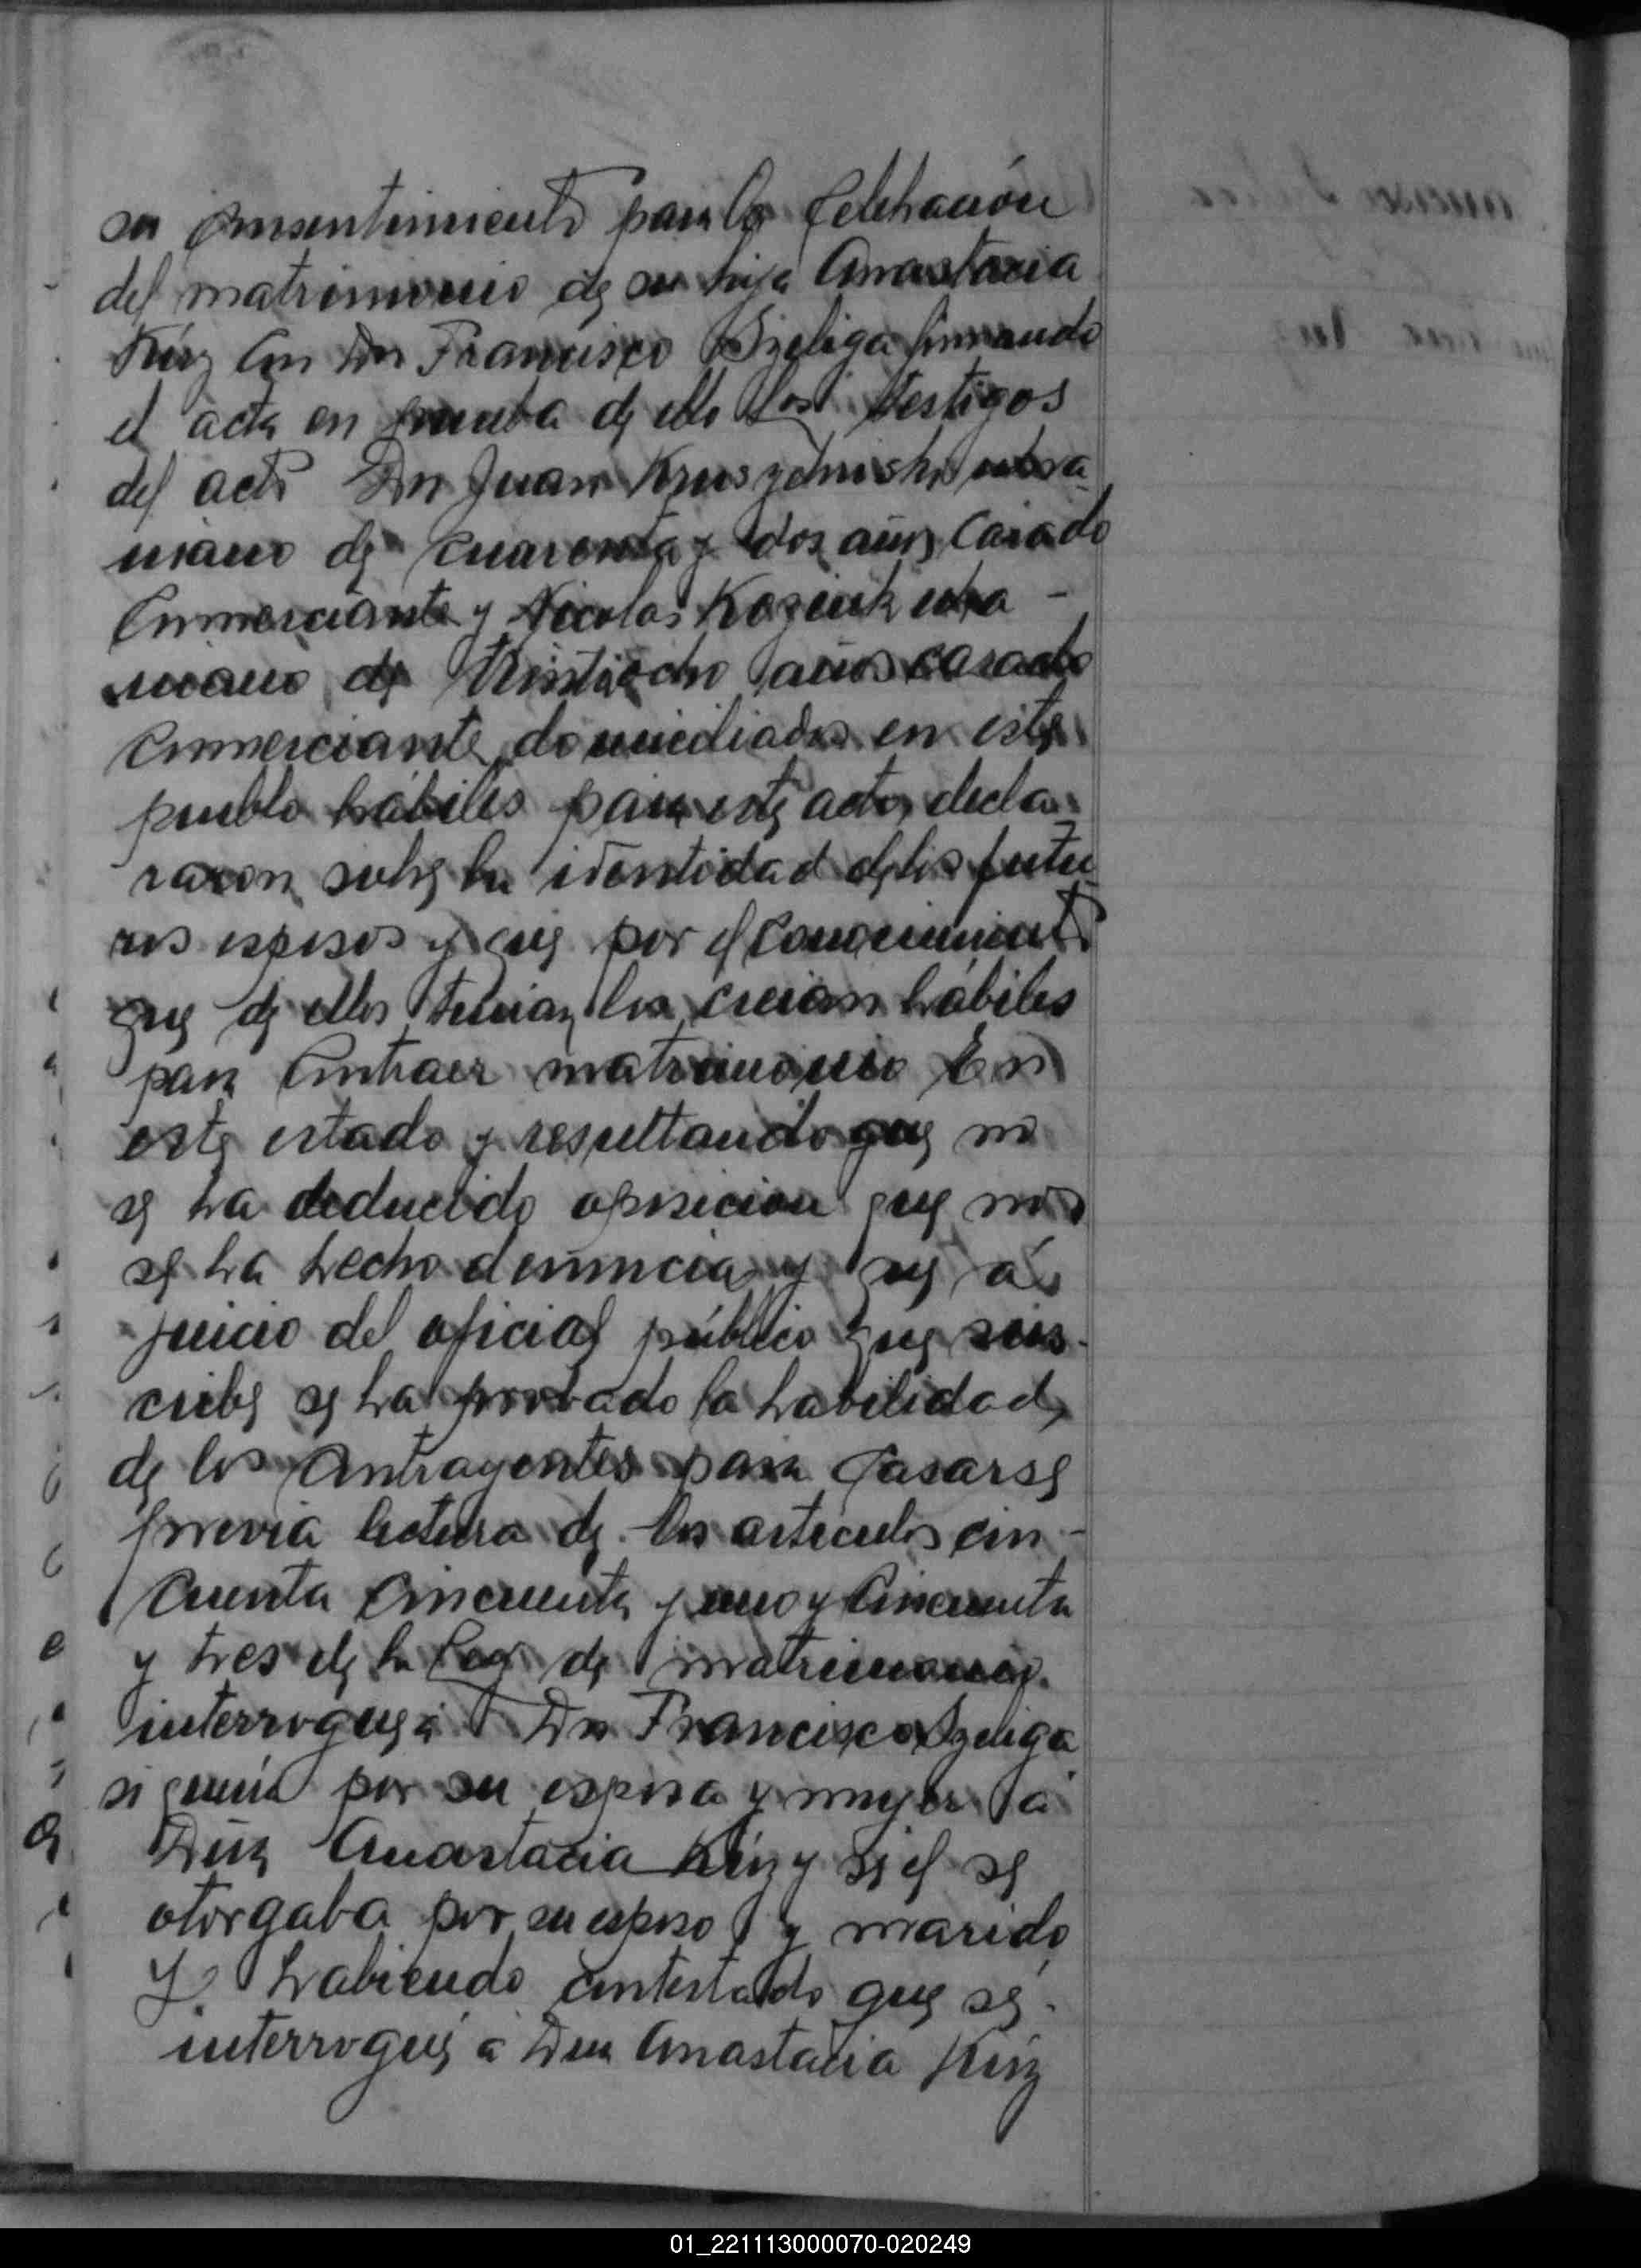 su consentimiento para la celebración
del matrimonio de su hija Anastacia
Kúz con Don Francisco Szeliga firmando
el acta en prueba de ello Los testigos
del acto Don Juan ucra
niano de cuarenta y dos años casado
comerciante y Nicolas Koziuk ucra-
niano de treintiocho años casado
comerciante domiciliados en este
pueblo hábiles para este acto, decla
raron sobre la identidad de los futu
ros esposos y que por el conocimiento
que de ellos tenian los creian hábiles
para contraer matrimonio En
este estado y resultando que no
se ha deducido oposicion que no
se ha hecho denuncia y que á
juicio del oficial público que sus-
cribe se ha probado la habilidad
de los contrayentes para casarse
previa lectura de los articulos cin-
cuenta cincuenta y uno y cincuenta
y tres de la Ley de matrimonio
interrogué á Don Francisco Szeliga
si queria por su esposa y mujer á
Doña Anastacia Kúz y si el se
otorgaba por su esposo y marido
Y habiendo contestado que sí
interrogué á Doña Anastacia Kúz
01_221113000070-020249